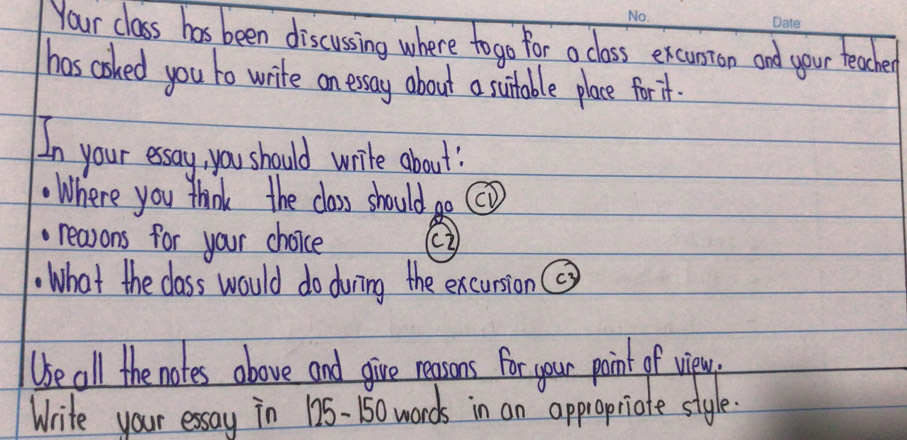 No.
Date
Your class has been discussing where to go for a class excursion and your teacher
has asked you to write an essay about a suitable place for it.
In your essay, you should write about:
• Where you think the class should go C1
• reasons for your choice C2
• What the class would do during the excursion C3
Use all the notes above and give reasons for your point of view.
Write your essay in 125-150 words in an appropriate style.